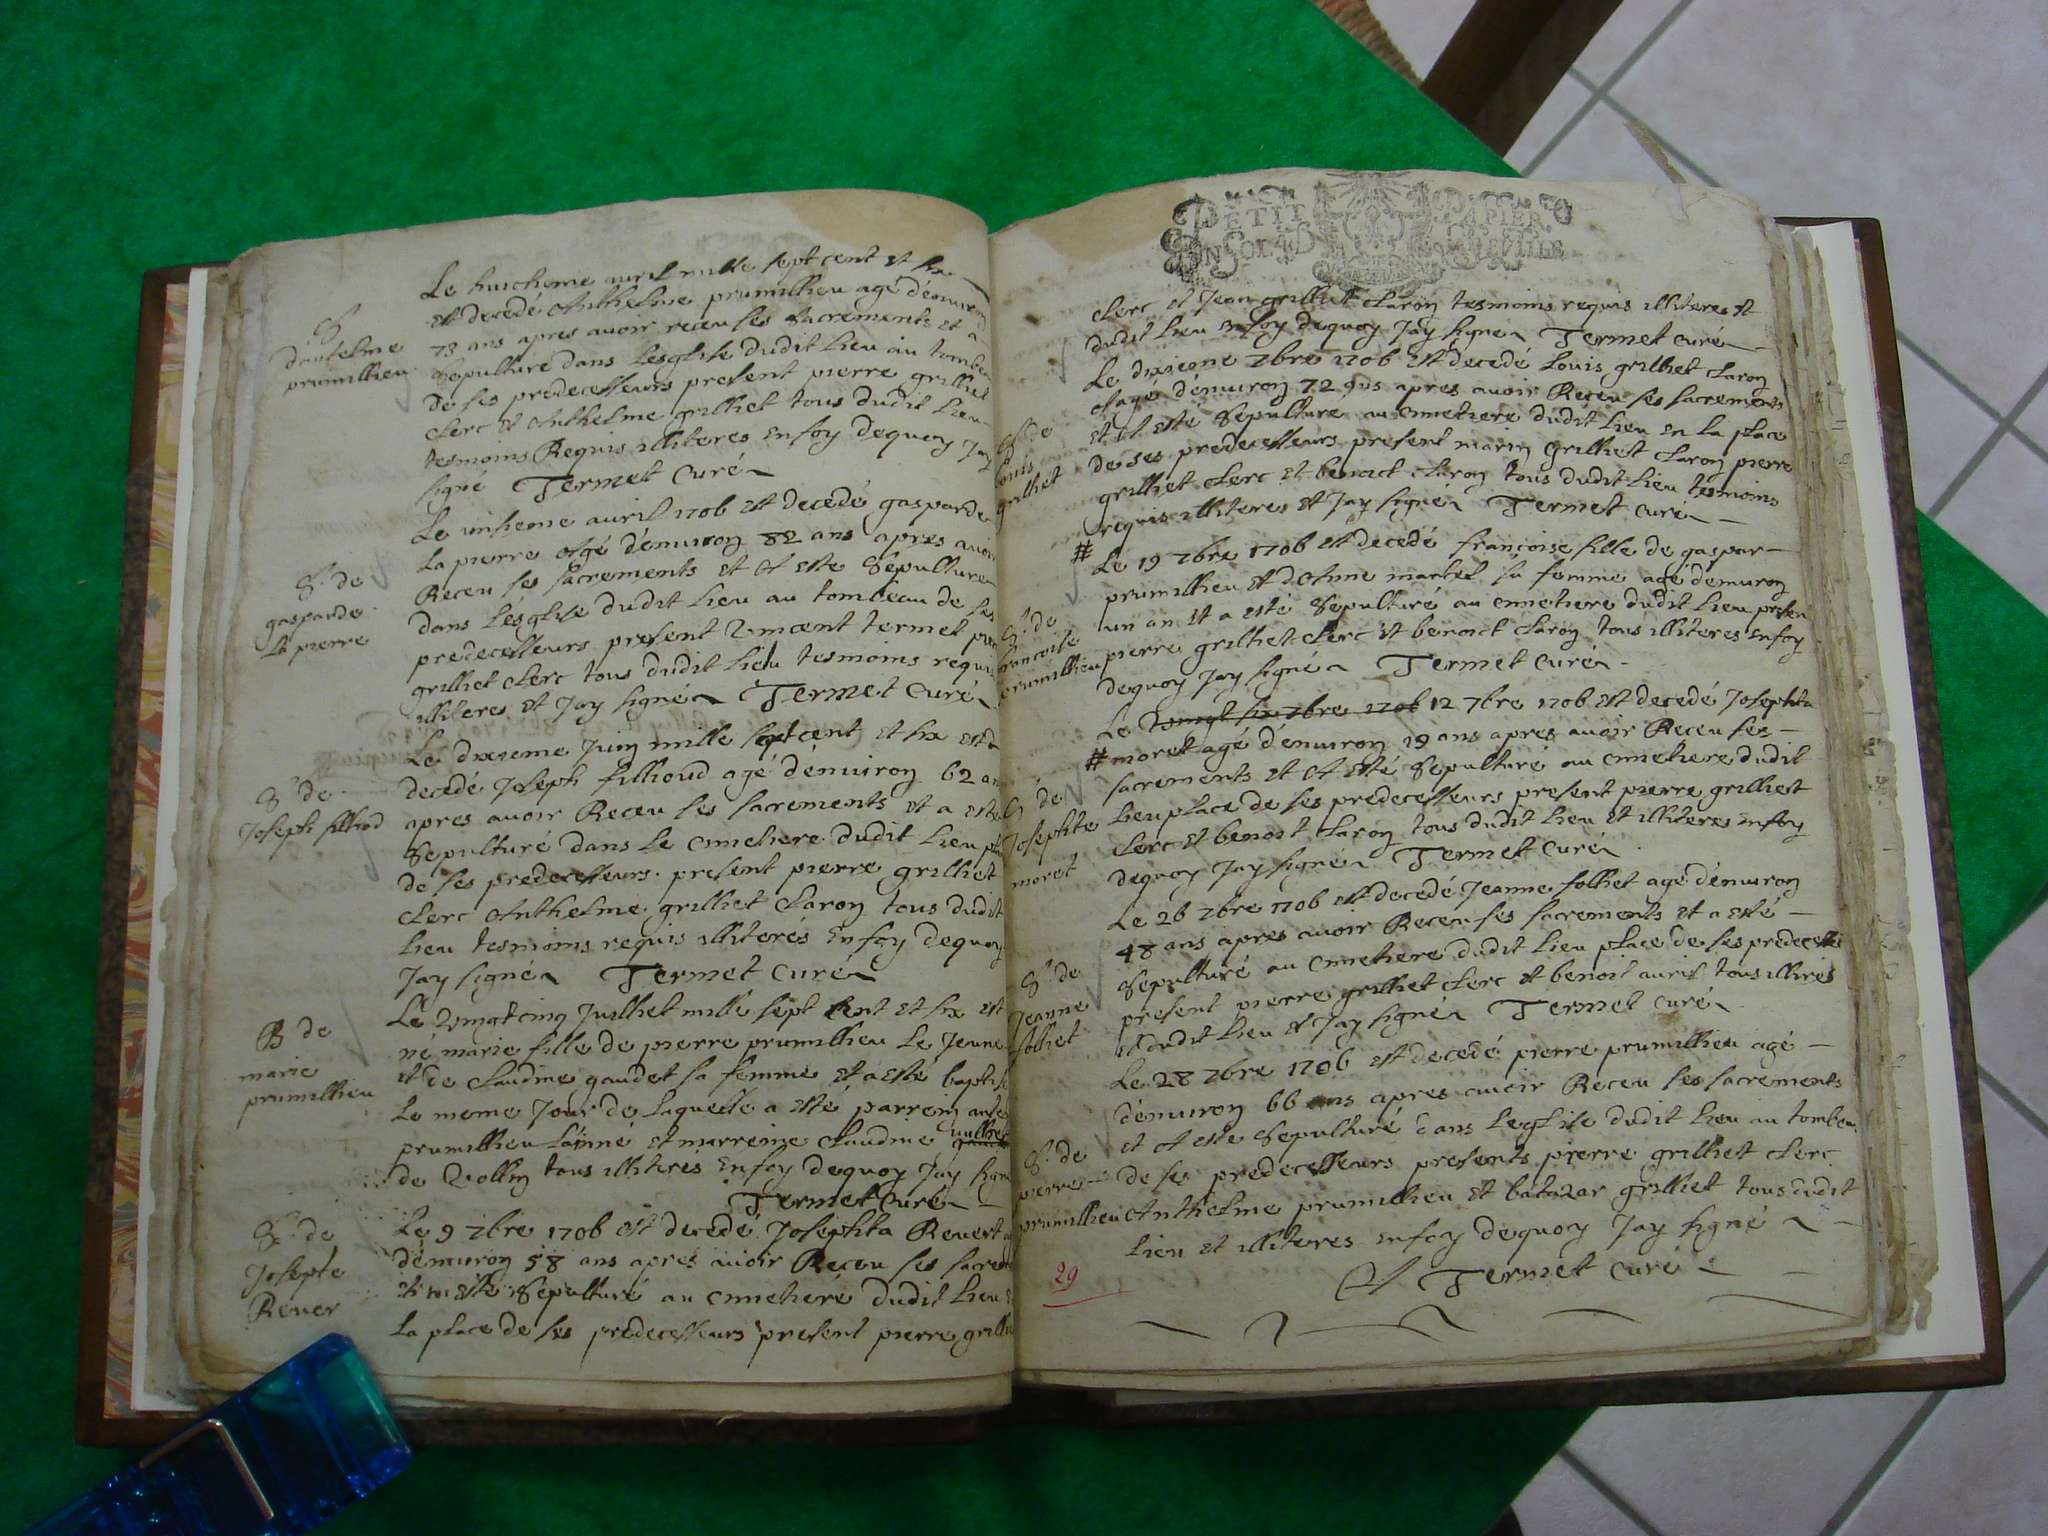 Le huicheme auril mille sept cent et six
est decedé Anthelme prumillieu agé d'enuiron
73 ans apres auoir receu ses sacrements et a
Sepulturé dans lesglise dudit lieu au tombeau
de ses predecesseurs present pierre grilliet
clerc et Anthelme grilliet tous dudit lieu
tesmoins Requis illiteres en foy dequoy Jay
signé Termet Curé
S
dantelme
prumillieu
Le auril 1706 est decedé gasparde
La pierre agé denuiron 82 ans apres auoir
Receu ses sacrements et A esté Sepulture
dans lesglise dudit lieu au tombeau de ses
predecesseurs present Vincent termet
grilliet clerc tous dudit lieu tesmoins requis
illiteres et Jay signé Termet Curé
S. de
gasparde
La pierre
Le dixieme Juin mille sept cent et six est
decedé Joseph fillioud agé d'enuiron 62 ans
apres auoir Receu ses sacrements et a esté
Sepulturé dans le cimetiere dudit lieu
de ses predecesseurs present pierre grilliet
clerc Anthelme grilliet Caron tous dudit
lieu tesmoins requis illiterés en foy dequoy
Jay signé Termet Curé
S. de
Joseph filliod
Le vingt cinq Juilliet mille sept cent et six est
né marie fille de pierre prumillieu le Jeune
et de Claudine gaudet sa femme et a esté
Le meme Jour de laquelle a esté parrein
prumillieu lainné et marreine Claudine
de Vollin tous illiteres en foy dequoy Jay signé
Termet Curé
B de
marie
prumillieu
Le 9 7bre 1706 est decedé Josephta Reuert
d'enuiron 58 ans apres auoir Receu ses
et a esté Sepulturé au cimetiere dudit lieu
la place de ses predecesseurs present pierre
S. de
Josepte
Reuer
PETIT PAPIER
clerc et Jean grilliet Caron tesmoins requis illiteres et
dudit lieu en foy dequoy Jay signé Termet curé
Le dixieme 7bre 1706 est decedé Louis grilliet Caron
agé d'enuiron 72 ans apres auoir Receu ses sacrements
et at esté Sepulture au cimetiere dudit lieu en la place
de ses predecesseurs present marin Grilliet Caron pierre
grilliet clerc et benoict Caron tous dudit lieu tesmoins
requis illiteres et Jay signé Termet curé
Louis
grilliet
# Le 19 7bre 1706 est decedé françoise fille de gaspar
prumillieu et d'Anne martel sa femme agé d'enuiron
un an et a esté Sepulturé au cimetiere dudit lieu present
pierre grilliet clerc et benoict Caron tous illiteres en foy
dequoy Jay signé Termet curé
S. de
francoise
prumillieu
Le vingt six 7bre 1706 12 7bre 1706 est decedé Josephta
# moret agé d'enuiron 19 ans apres auoir Receu ses
sacrements et at esté Sepulturé au cimetiere dudit
lieu place de ses predecesseurs present pierre grilliet
clerc et benoit Caron tous dudit lieu et illiteres en foy
dequoy Jay signé Termet curé
S de
Josephte
moret
Le 26 7bre 1706 est decedé Jeanne folliet agé d'enuiron
48 ans apres auoir Receu ses sacrements et a esté
Sepulturé au cimetiere dudit lieu place de ses
present pierre grilliet clerc et benoit auril tous
et dudit lieu et Jay signé Termet curé
S. de
Jeanne
folliet
Le 28 7bre 1706 est decedé pierre prumillieu agé
d'enuiron 66 ans apres auoir Receu ses sacrements
et A esté Sepulturé dans lesglise dudit lieu au tombeau
de ses predecesseurs presents pierre grilliet clerc
Anthelme prumillieu et batazar grilliet tous dudit
lieu et illiteres en foy dequoy Jay signé
Termet curé
S. de
pierre
prumillieu
29